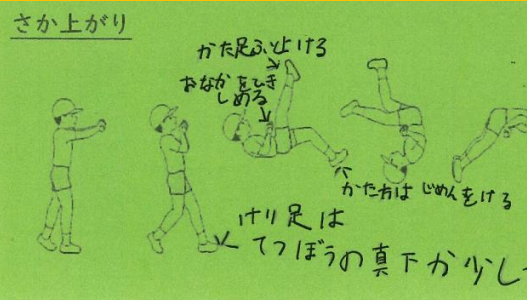 さか上がり
かた足ふり上げる
おなかをひき
しめる
かた方は じめんをける
けり足は
てつぼうの真下か少し